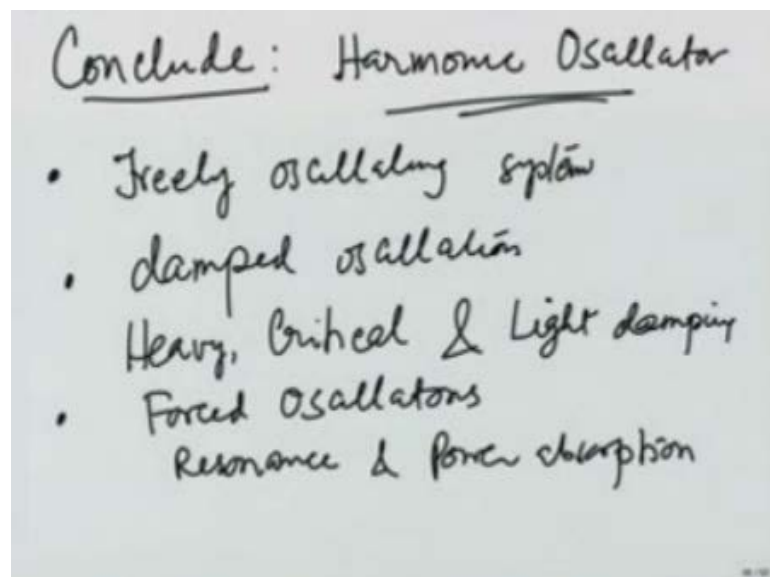 Conclude: Harmonic Oscillator
• Freely oscillating system
• damped oscillations
Heavy, Critical & Light damping
• Forced Oscillations
Resonance & Power absorption